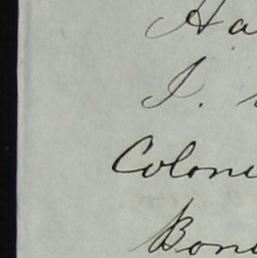 Ha
I.
Coloni
Bon